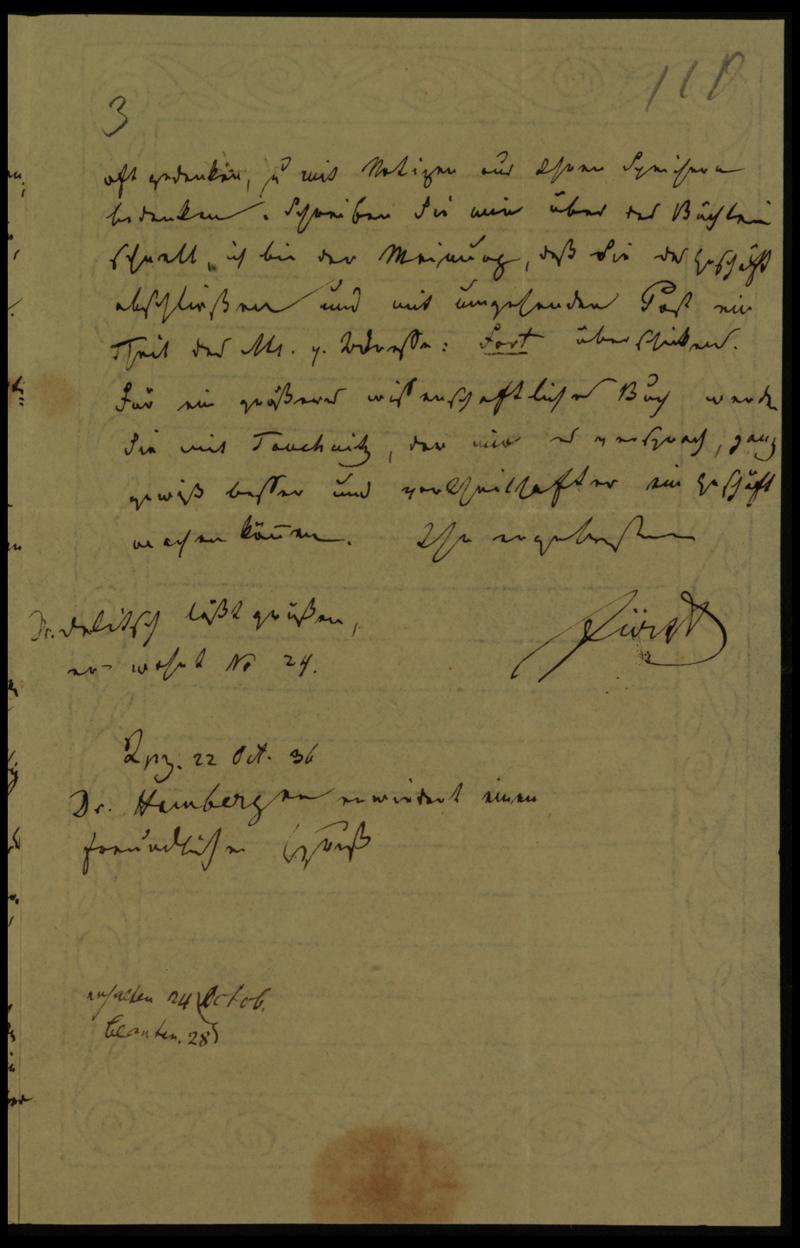 3
110
oft gedenken, u mit Notizen aus Ihren Speichern
bedenken. Schreiben Sie mir über das Büchlein
schnell, ich bin der Meinung, daß Sie das Geschäft
abschließen und mit umgehender Post ein
Theil des Ms. p. Adresse: Fort überschicken.
Für ein größeres wissenschaftliches Buch werden
Sie mit Tauchnitz, der mir es versprach, ganz
gewiß besser und vortheilhafter ein Geschäft
machen können. Ihr ergebenster
Fürst
Dr. Delitsch läßt grüßen,
er wohnt No 24.
Lpzg. 22 Oct. 36
Dr. Hamberger erwiedert einen
freundlichen Gruß
erhalten 24 Octob.
beantw. 28